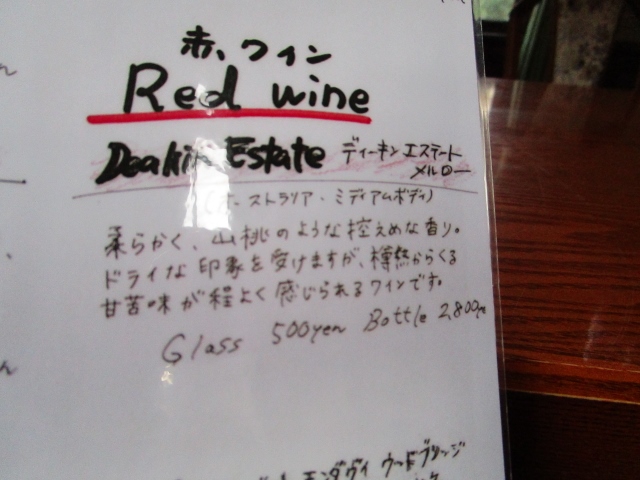 赤ワイン
Red wine
Deakin Estate ディーキンエステート
メルロー
(オーストラリア・ミディアムボディ)
柔らかく、山桃のような控えめな香り。
ドライな印象を受けますが、樽熟からくる
甘苦味が程よく感じられるワインです。
Glass 500yen Bottle 2,800ye
モンダヴィ ウッドブリッジ